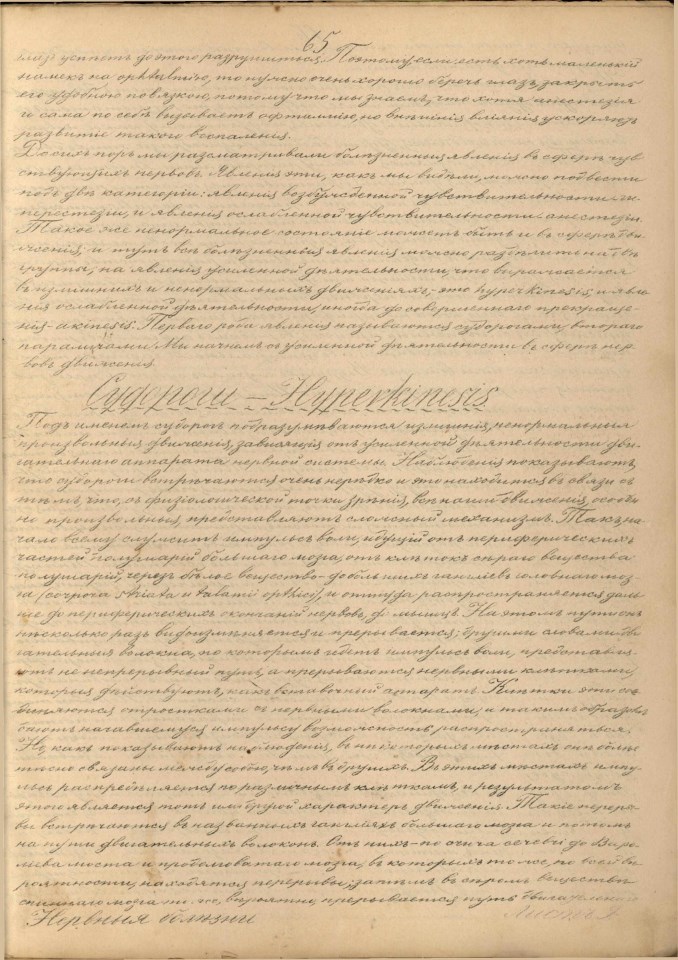 65
глазъ успѣетъ до этого разрушиться. Поэтому, если есть хоть маленькій
намекъ на ophtalmiю, то нужно очень хорошо беречь глазъ, закрыть
его удобною повязкою, потому что мы знаемъ, что хотя анестезія
и сама по себѣ вызываетъ офтальмію, но внѣшнія вліянія ускоряютъ
развитіе такого воспаленія.
До сихъ поръ мы разсматривали болѣзненныя явленія въ сферѣ чув
ствующихъ нервовъ. Явленія эти, какъ мы видѣли, можно подвести
подъ двѣ категоріи: явленія возбужденной чувствительности - ги-
перестезіи, и явленія ослабленной чувствительности - анестезіи.
Такое же ненормальное состояніе можетъ быть и въ сферѣ дви
женія, и тутъ всѣ болѣзненныя явленія можно раздѣлить на двѣ
группы, на явленія усиленной дѣятельности, что выражается
въ излишнихъ и ненормальныхъ движеніяхъ, - это hyperkinesis, и явле
нія ослабленной дѣятельности, иногда до совершеннаго прекраще
нія - akinesis. Перваго рода явленія называются судорогами, втораго
параличами. Мы начнемъ съ усиленной дѣятельности въ сферѣ нер
вовъ движенія.
Судороги — Hyperkinesis
Подъ именемъ судорогъ подразумѣваются излишнія, ненормальныя
произвольныя движенія, зависящія отъ усиленной дѣятельности дви
гательнаго аппарата нервной системы. Наблюденія показываютъ,
что судороги встрѣчаются очень нерѣдко и это находится въ связи съ
тѣмъ, что, съ физіологической точки зрѣнія, всѣ наши движенія, особен
но произвольныя, представляютъ сложный механизмъ. Такъ, на-
чало всему служитъ импульсъ воли, идущій отъ периферическихъ
частей полушарій большаго мозга, отъ клѣтокъ сѣраго вещества
полушарій, черезъ бѣлое вещество - до большихъ гангліевъ головнаго моз
га (corpora striata и talami optici), и оттуда распространяется даль
ше до периферическихъ окончаній нервовъ, до мышцъ. На этомъ пути онъ
нѣсколько разъ видоизмѣняется и прерывается; другими словами дви
гательныя волокна, по которымъ идетъ импульсъ воли, представля
ютъ не непрерывный путь, а прерываются нервными клѣтками,
которыя дѣйствуютъ, какъ вставочный аппаратъ. Клѣтки эти со
единяются отростками съ нервными волокнами, и такимъ образомъ
даютъ начавшемуся импульсу возможность распространяться.
Но, какъ показываютъ наблюденія, въ нѣкоторыхъ мѣстахъ онѣ болѣе
тѣсно связаны между собою, чѣмъ въ другихъ. Въ этихъ мѣстахъ импу
льсъ распредѣляется по различнымъ клѣткамъ, и результатомъ
этого является тотъ или другой характеръ движенія. Такіе переры
вы встрѣчаются въ названныхъ гангліяхъ большаго мозга и потомъ
на пути двигательныхъ волоконъ. Отъ нихъ - по
моста и продолговатаго мозга, въ которыхъ тоже, по всей вѣ
роятности, находятся перерывы; затѣмъ въ сѣромъ веществѣ
спиннаго мозга тоже, вѣроятно, прерывается путь
Нервныя болѣзни
Листъ